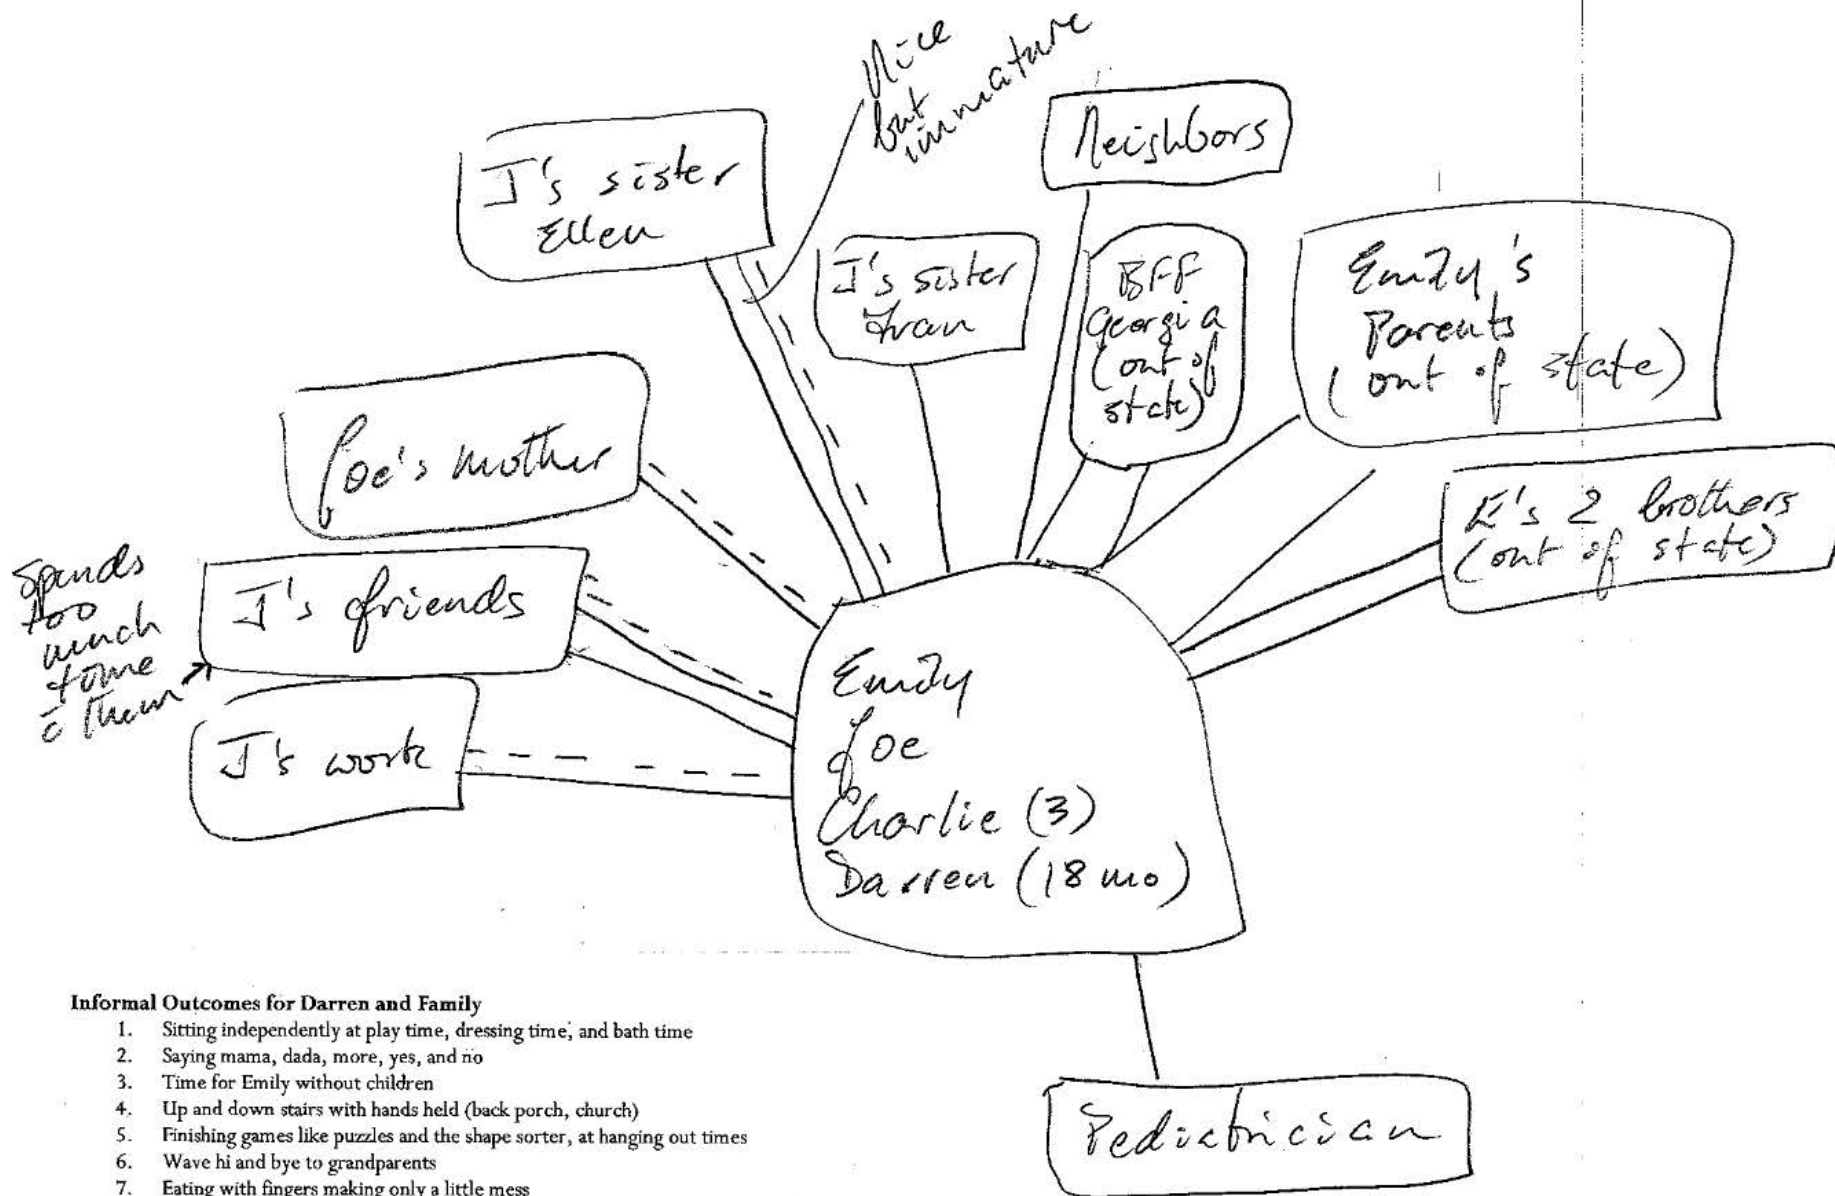 Nice
but
immature
Neighbors
J's sister
Ellen
J's sister
Fran
BFF
Georgia
(out of
state)
Emily's
Parents
(out of state)
Joe's mother
E's 2 brothers
(out of state)
Spends
too
much
time
c̄ them
J's friends
J's work
Emily
Joe
Charlie (3)
Darren (18 mo)
Pediatrician
Informal Outcomes for Darren and Family
1. Sitting independently at play time, dressing time, and bath time
2. Saying mama, dada, more, yes, and no
3. Time for Emily without children
4. Up and down stairs with hands held (back porch, church)
5. Finishing games like puzzles and the shape sorter, at hanging out times
6. Wave hi and bye to grandparents
7. Eating with fingers making only a little mess